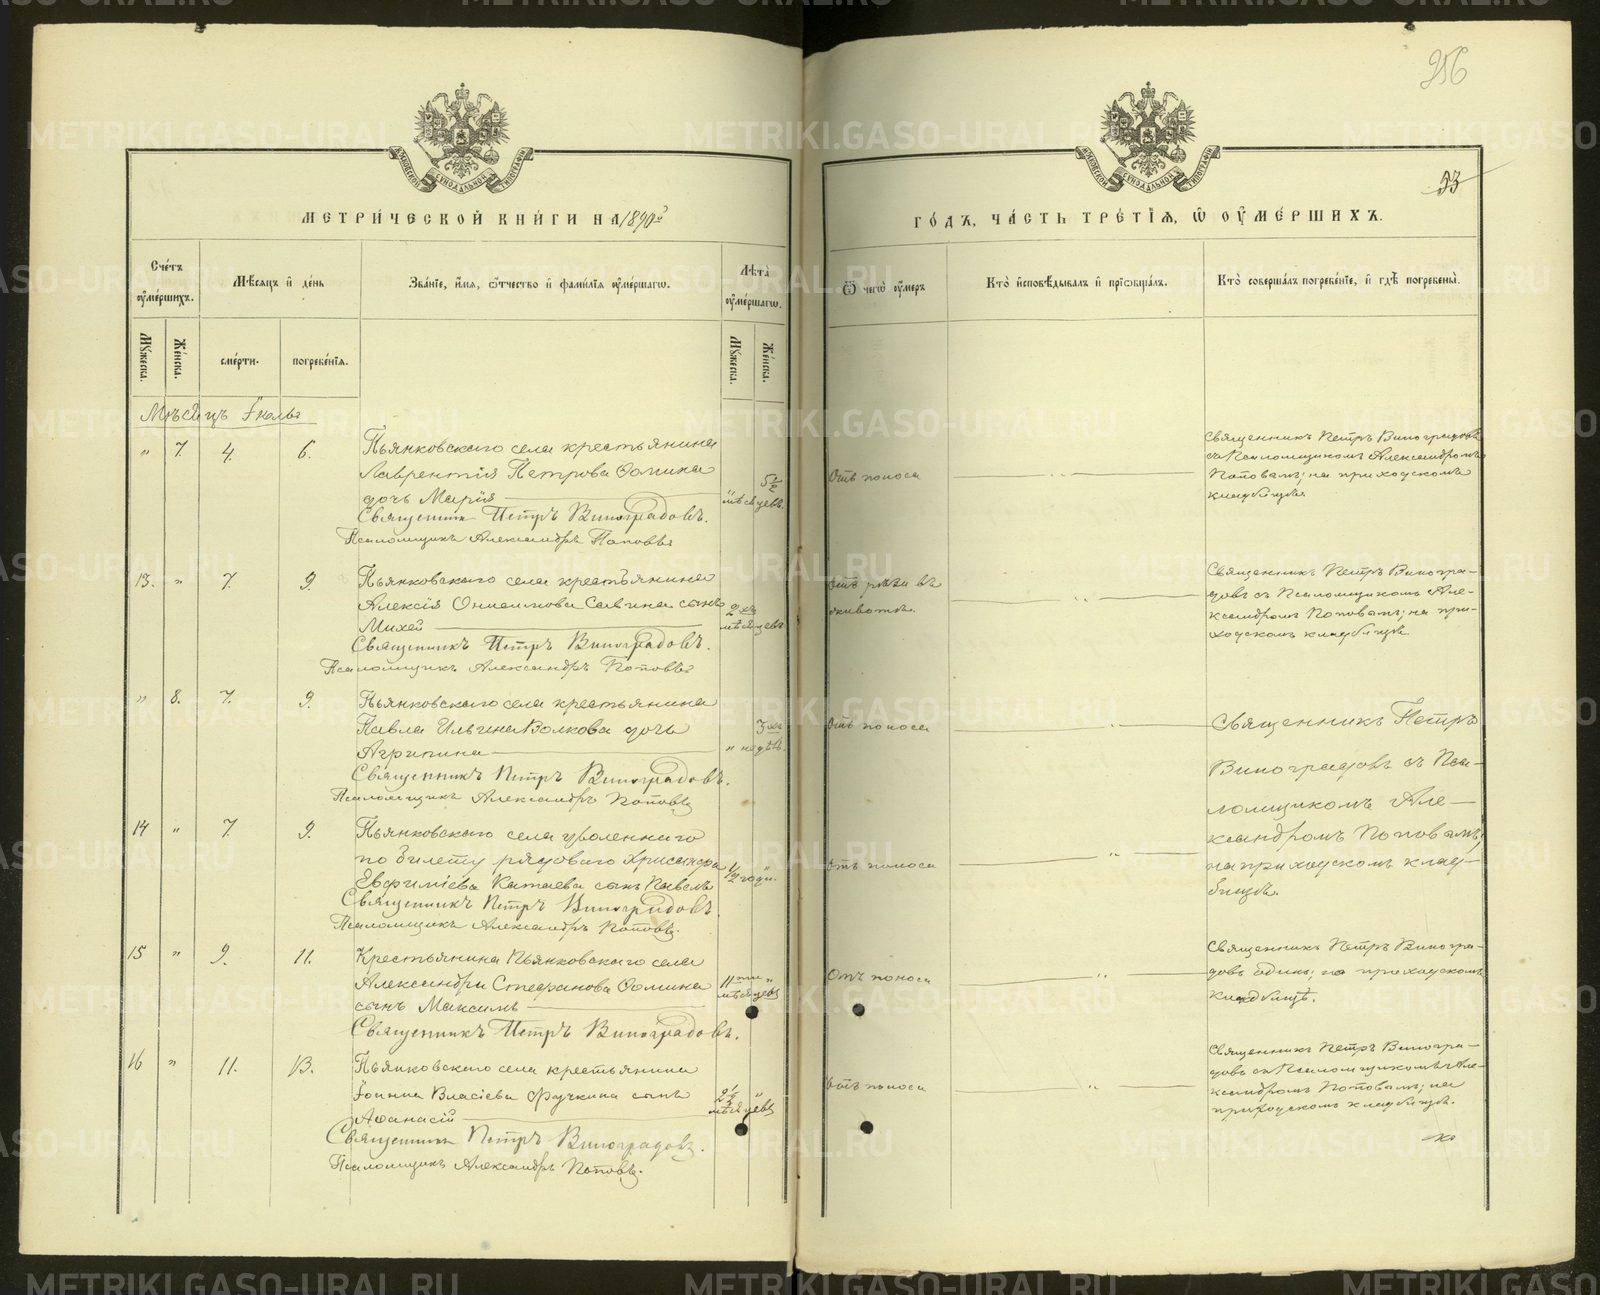 256
53
МЕТРИ́ЧЕСКОЙ КНИ́ГИ НА 1890й
ГО́ДЪ, ЧА́СТЬ ТРЕ́ТІѦ, Ѿ ОУ҆МЕ́РШИХЪ.
Сче́тъ оу҆ме́ршихъ.
Мѣ́сяцъ и҆ де́нь
Зва́ніе, и҆́мя, ѻ҆́тчество и҆ фами́лія оу҆ме́ршагѡ.
Лѣ́та оу҆ме́ршагѡ.
Ѿ чегѡ̀ оу҆́меръ
Кто̀ и҆сповѣ́дывалъ и҆ прїѡбща́лъ.
Кто̀ соверша́лъ погребе́ніе, и҆ гдѣ̀ погребены̀.
Мꙋ́жеска.
Же́нска.
сме́рти.
погребе́нія.
Мꙋ́жеска.
Же́нска.
Мѣсяцъ Іюль
" 7. 4. 6.
Пьянковскаго села крестьянина
Лаврентія Петрова Ѳомина
дочь Марія
Священникъ Петръ Виноградовъ.
Псаломщикъ Александръ Поповъ
5 1/2
мѣсяцевъ.
Отъ поноса
"
Священникъ Петръ Виноградовъ
съ Псаломщикомъ Александромъ
Поповымъ; на приходскомъ
кладбищѣ
13. " 7. 9.
Пьянковскаго села крестьянина
Алексія Онисимова Савина сынъ
Михей
Священникъ Петръ Виноградовъ.
Псаломщикъ Александръ Поповъ
2хъ
мѣсяцевъ
Отъ рѣзи въ
животѣ.
"
Священникъ Петръ Виногра-
довъ съ Псаломщикомъ Але-
ксандромъ Поповымъ; на при-
ходскомъ кладбищѣ
" 8. 7. 9.
Пьянковскаго села крестьянина
Павла Ильина Волкова дочь
Агрипина
Священникъ Петръ Виноградовъ.
Псаломщикъ Александръ Поповъ
3хъ
" недѣль.
Отъ поноса
"
Священникъ Петръ
Виноградовъ съ Пса-
ломщикомъ Але-
ксандромъ Поповымъ;
на приходскомъ клад-
бищѣ.
14 " 7. 9.
Пьянковскаго села уволеннаго
по билету рядоваго Хрисанфа
Евфиміева Катаева сынъ Павелъ
Священникъ Петръ Виноградовъ.
Псаломщикъ Александръ Поповъ.
1/2 года.
Отъ поноса
"
15 " 9. 11.
Крестьянина Пьянковскаго села
Александра Стефанова Ѳомина
сынъ Максимъ
Священникъ Петръ Виноградовъ.
11ти "
мѣсяцевъ
Отъ поноса
"
Священникъ Петръ Виногра-
довъ одинъ; на приходскомъ
кладбищѣ.
16 " 11. 13.
Пьянковскаго села крестьянина
Іоанна Власіева Фучкина сынъ
Аѳанасій
Священникъ Петръ Виноградовъ.
Псаломщикъ Александръ Поповъ.
2 1/2 "
мѣсяцевъ
Отъ поноса
"
Священникъ Петръ Виногра-
довъ съ Псаломщикомъ Але-
ксандромъ Поповымъ; на
приходскомъ кладбищѣ.
METRIKI.GASO-URAL.RU